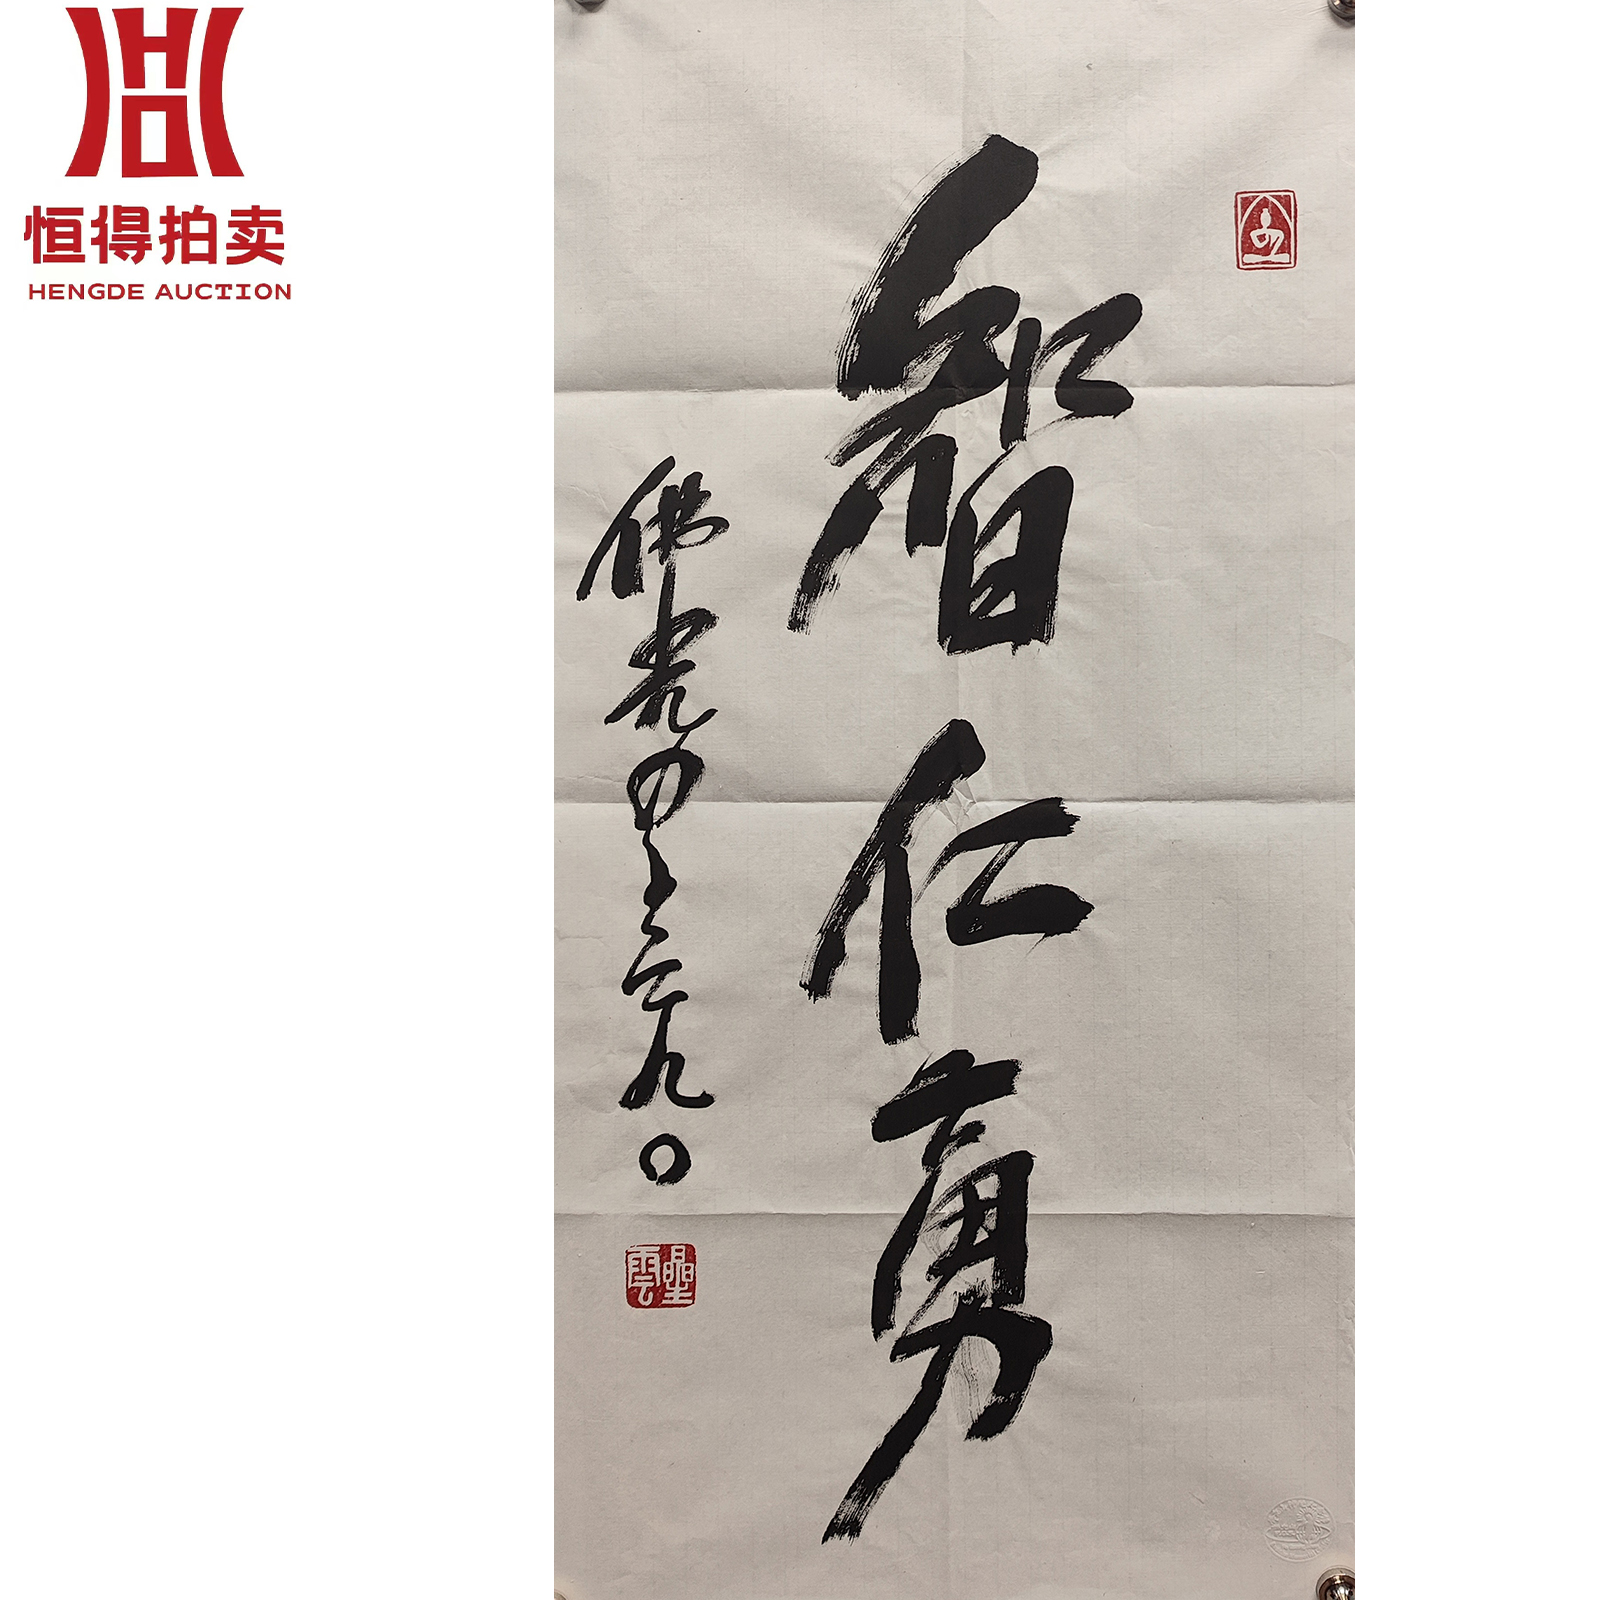 恒得拍卖
HENGDE AUCTION
智仁勇
佛光星云九〇
星雲